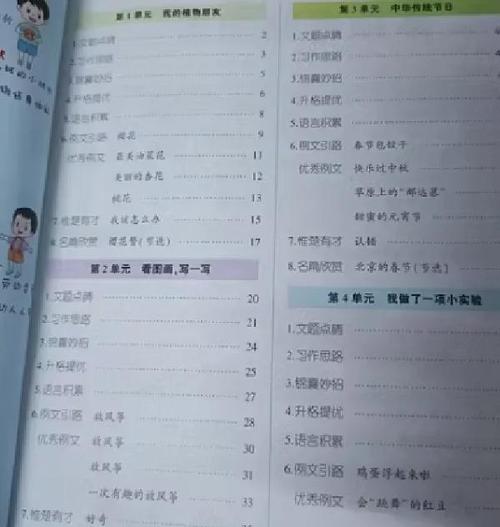 第1单元 我的植物朋友
1.文题点睛 2
2.习作思路 3
3.锦囊妙招 5
4.升格提优 6
5.语言积累 8
6.例文引路 桃花 9
优秀例文 最美油菜花 11
美丽的杏花 12
桃花 13
7.惟楚有才 我该怎么办 15
8.名篇欣赏 樱花赞(节选) 17
第2单元 看图画,写一写
1.文题点睛 20
2.习作思路 21
3.锦囊妙招 24
4.升格提优 25
5.语言积累 27
6.例文引路 放风筝 28
优秀例文 放风筝 30
放风筝 31
一次有趣的放风筝 33
7.惟楚有才 好奇
第3单元 中华传统节日
1.文题点睛
2.习作思路
3.锦囊妙招
4.升格提优
5.语言积累
6.例文引路 春节包饺子
优秀例文 快乐过中秋
草原上的“那达慕”
甜蜜的元宵节
7.惟楚有才 认错
8.名篇欣赏 北京的春节(节选)
第4单元 我做了一项小实验
1.文题点睛
2.习作思路
3.锦囊妙招
4.升格提优
5.语言积累
6.例文引路 鸡蛋浮起来啦
优秀例文 会“跳舞”的红豆